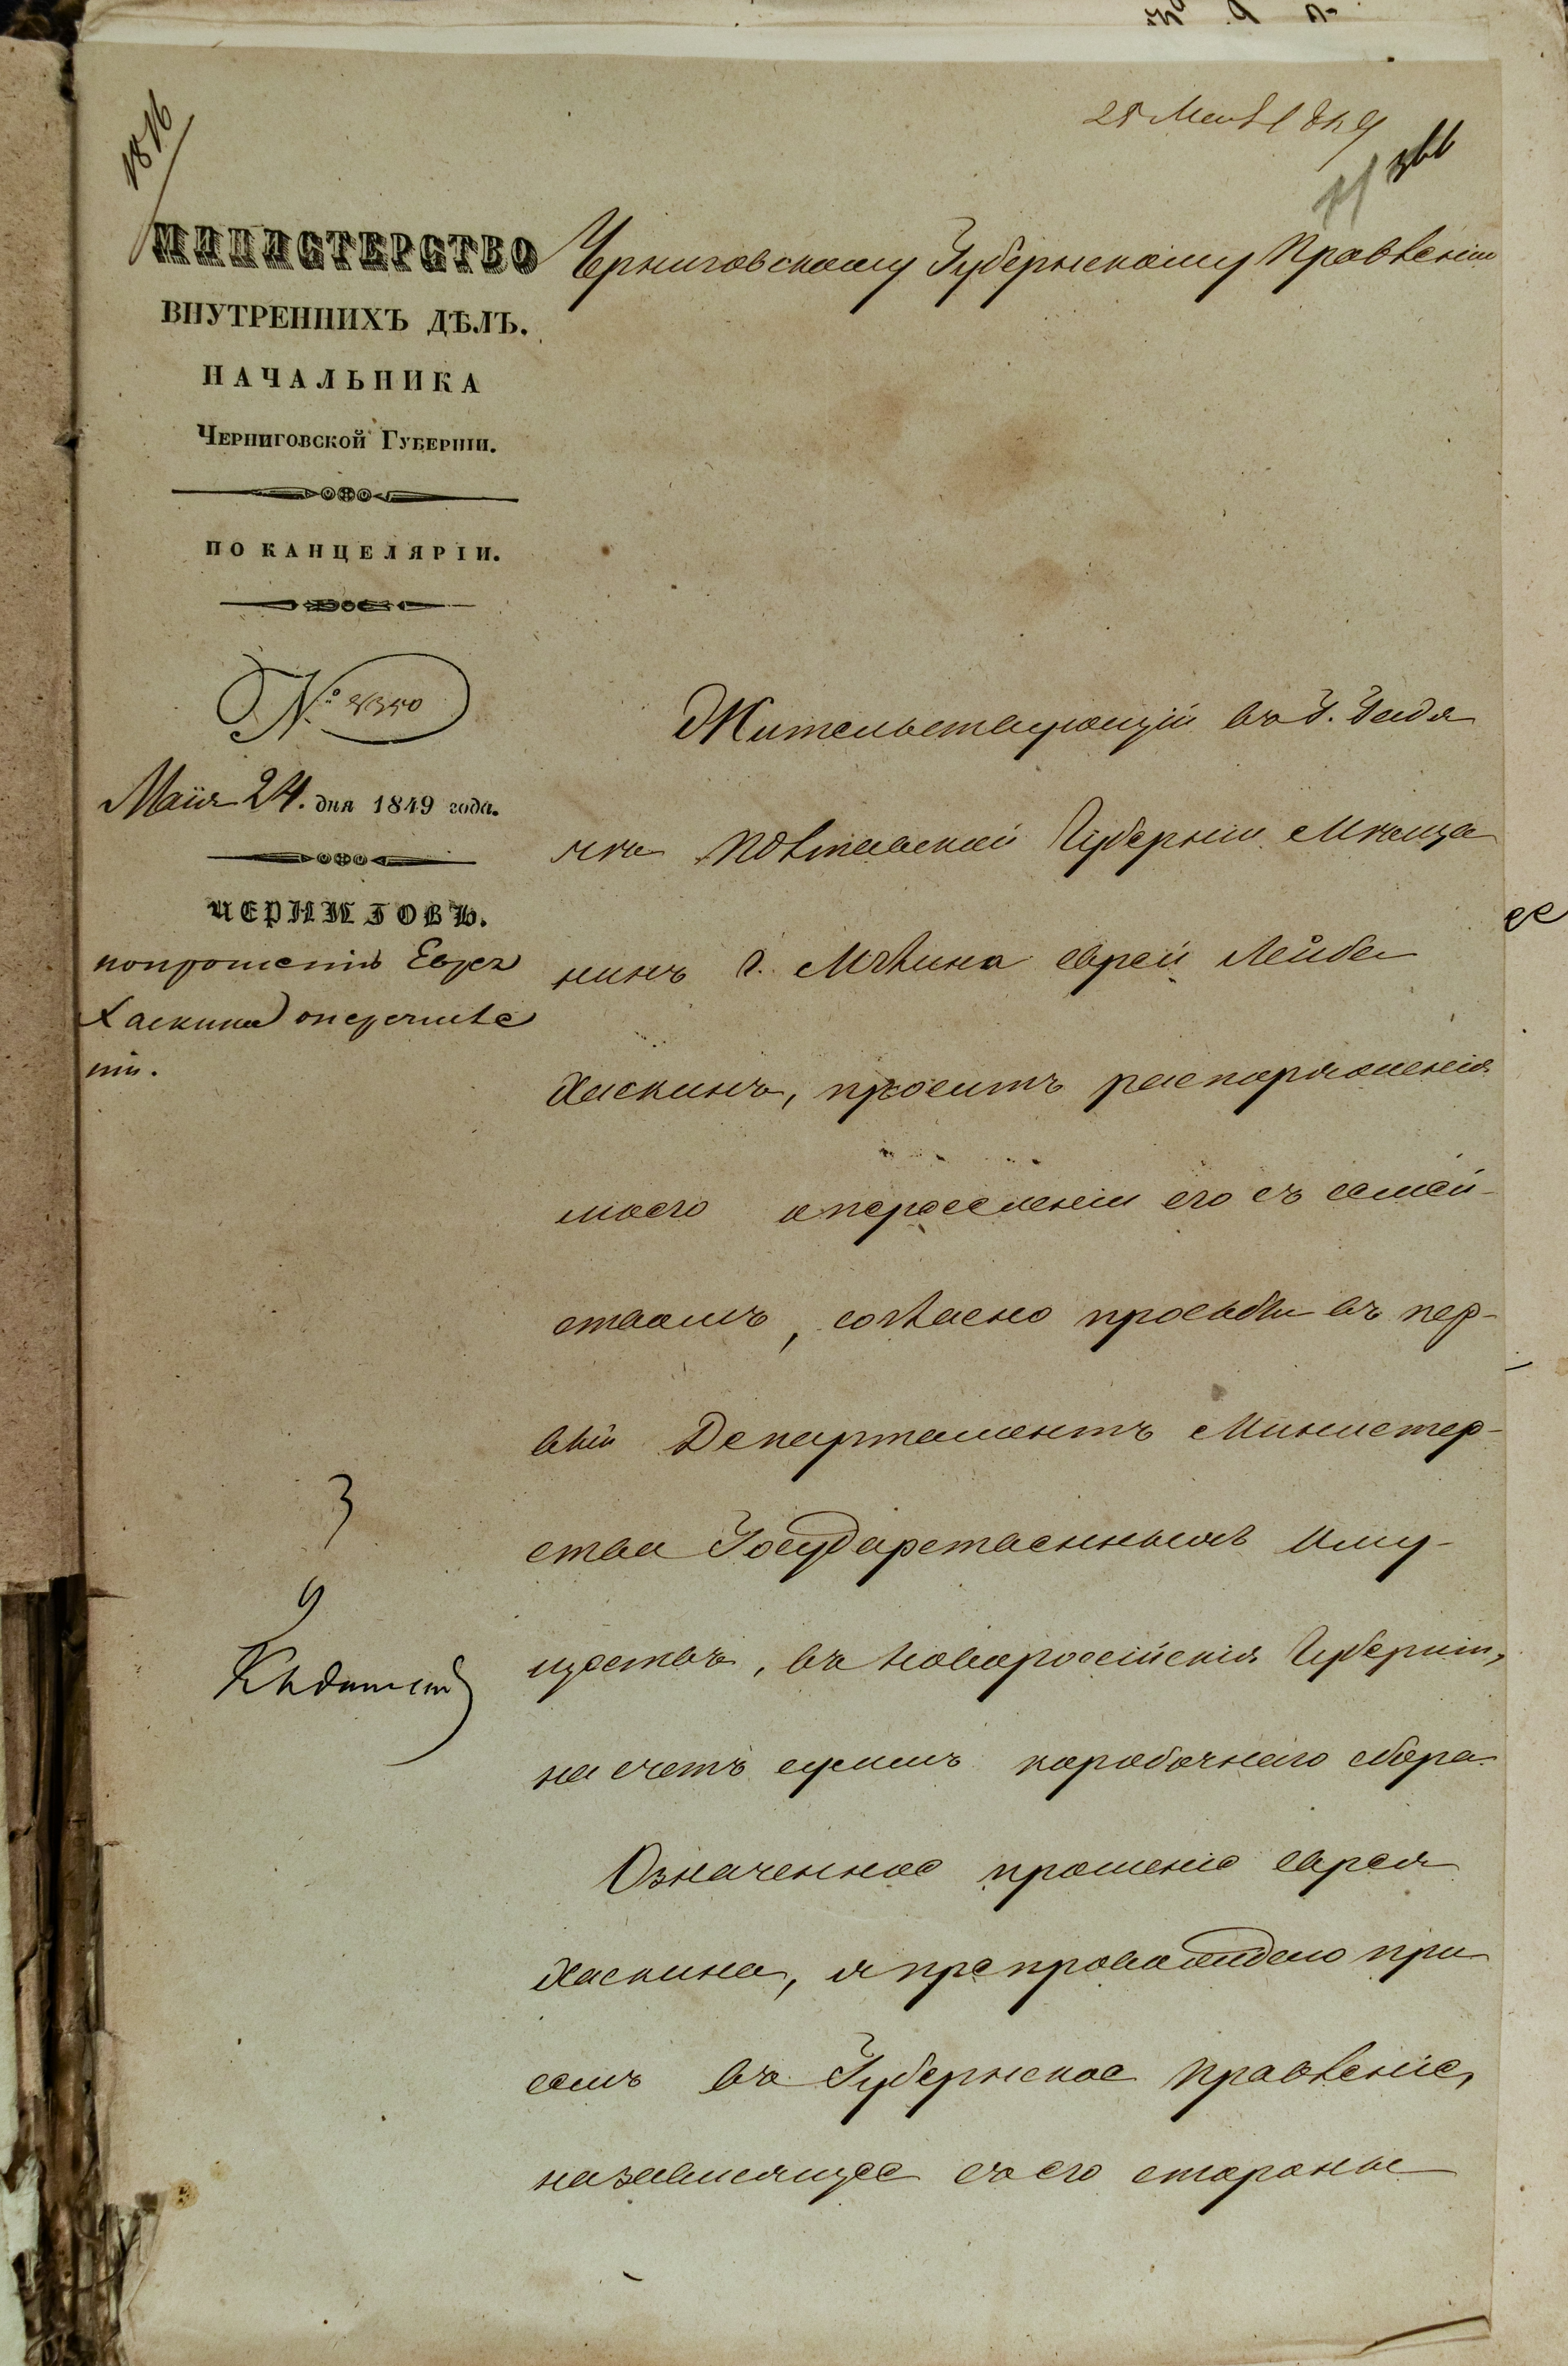 1816
25 Мая 1849
366
МИНИСТЕРСТВО
ВНУТРЕННИХЪ ДѢЛЪ.
НАЧАЛЬНИКА
ЧЕРНИГОВСКОЙ ГУБЕРНІИ.
ПО КАНЦЕЛЯРІИ.
№ 8350
Маія 24. дня 1849 года.
ЧЕРНИГОВЪ.
по прошенію Еврея
Хаскина о перечисле
ніи.
Черниговскому Губернскому Правленію
Жительствующій въ Г. Гадя
чѣ Полтавской Губерніи Мѣща
нинъ г. Мглина еврей Лейба
Хаскинъ, проситъ распоряженія
моего о переселеніи его съ семей-
ствомъ, согласно просьбы въ пер-
вый Департаментъ Министер-
ства Государственныхъ Иму-
ществъ, въ Новороссійскія Губерніи,
на счетъ суммъ коробочнаго сбора.
Означенное прошеніе еврея
Хаскина, я препровождаю при
семъ въ Губернское Правленіе,
на зависящее съ его стороны